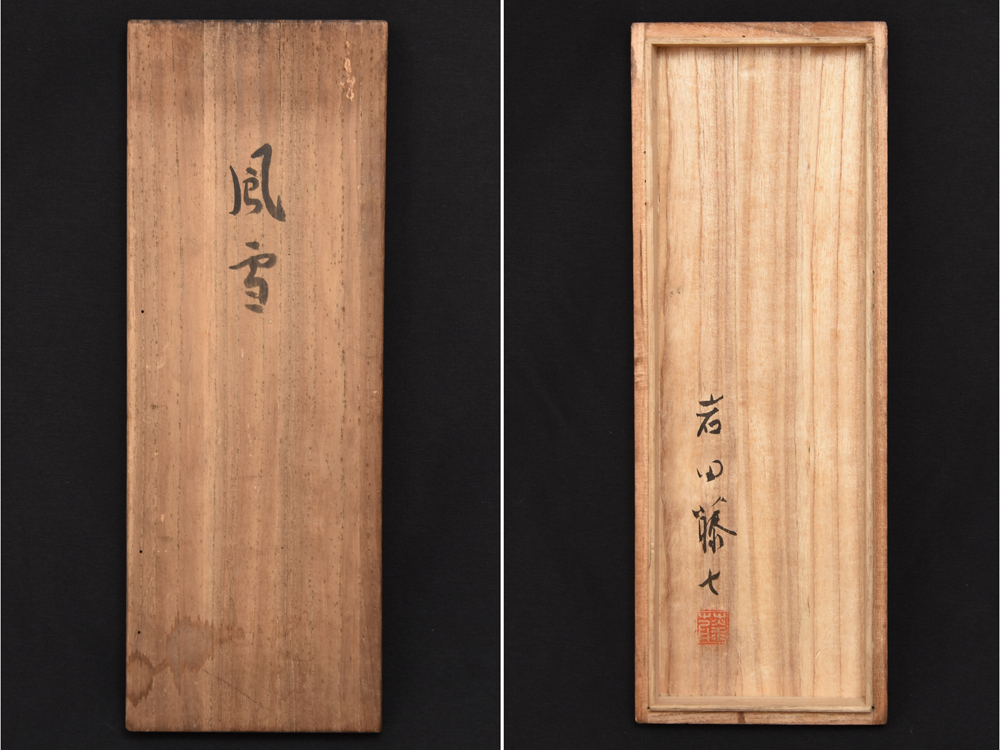 風雪
岩田藤七